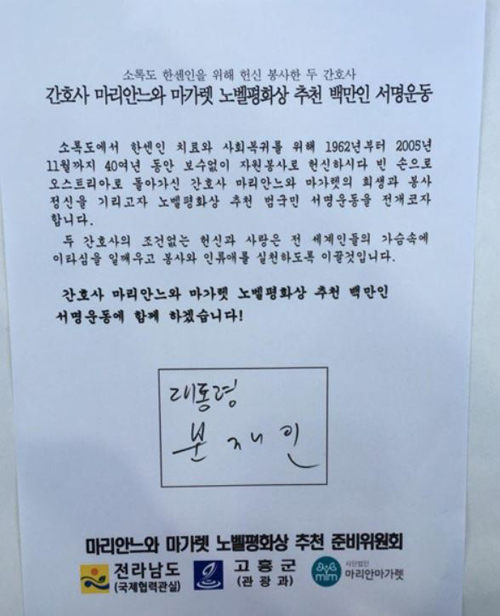 소록도 한센인을 위해 헌신 봉사한 두 간호사
간호사 마리안느와 마가렛 노벨평화상 추천 백만인 서명운동
소록도에서 한센인 치료와 사회복귀를 위해 1962년부터 2005년
11월까지 40여년 동안 보수없이 자원봉사로 헌신하시다 빈 손으로
오스트리아로 돌아가신 간호사 마리안느와 마가렛의 희생과 봉사
정신을 기리고자 노벨평화상 추천 범국민 서명운동을 전개코자
합니다.
두 간호사의 조건없는 헌신과 사랑은 전 세계인들의 가슴속에
이타심을 일깨우고 봉사와 인류애를 실천하도록 이끌것입니다.
간호사 마리안느와 마가렛 노벨평화상 추천 백만인
서명운동에 함께 하겠습니다!
대통령
문재인
마리안느와 마가렛 노벨평화상 추천 준비위원회
전라남도
(국제협력관실)
고흥군
(관광과)
mlm
사단법인
마리안마가렛